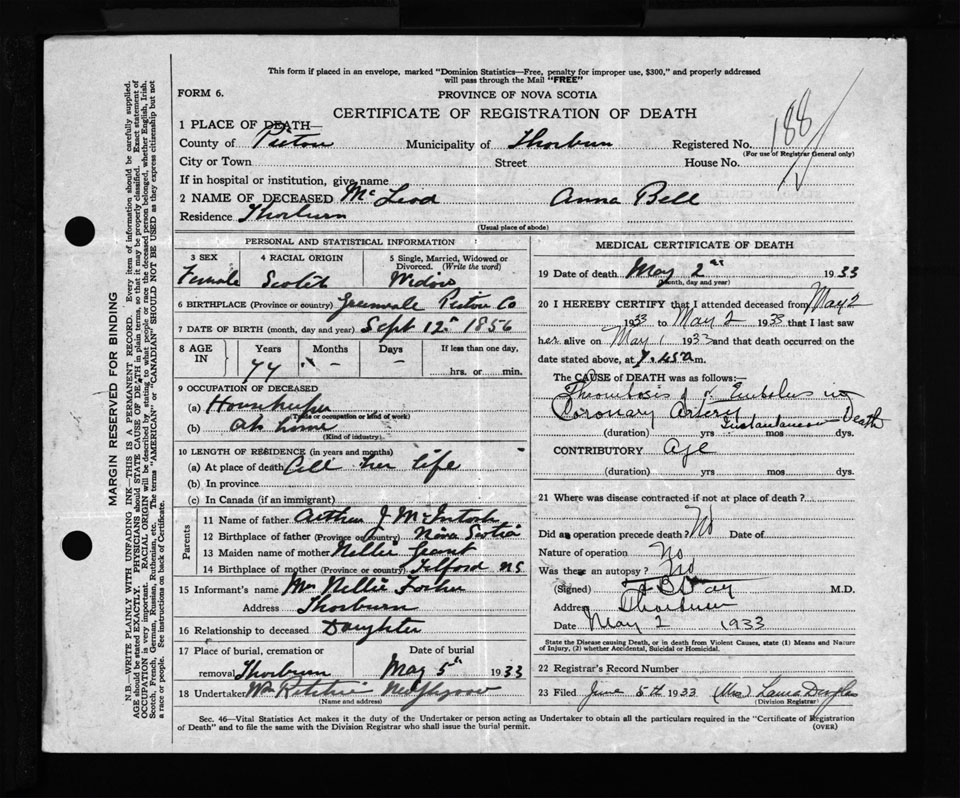 This form if placed in an envelope, marked "Dominion Statistics—Free, penalty for improper use, $300," and properly addressed
will pass through the Mail "FREE"
FORM 6.
PROVINCE OF NOVA SCOTIA
CERTIFICATE OF REGISTRATION OF DEATH
188
1 PLACE OF DEATH—
County of Pictou Municipality of Thorburn Registered No.
(For use of Registrar General only)
City or Town Street House No.
If in hospital or institution, give name
2 NAME OF DECEASED McLeod Anna Bell
Residence Thorburn
(Usual place of abode)
PERSONAL AND STATISTICAL INFORMATION
3 SEX 4 RACIAL ORIGIN 5 Single, Married, Widowed or
Divorced. (Write the word)
Female Scotch Widow
6 BIRTHPLACE (Province or country) Greenvale Pictou Co
7 DATE OF BIRTH (month, day and year) Sept 12th 1856
8 AGE IN Years Months Days If less than one day,
77 - - hrs. or min.
9 OCCUPATION OF DECEASED
(a) Housekeeper
(Trade or occupation or kind of work)
(b) At home
(Kind of industry)
10 LENGTH OF RESIDENCE (in years and months)
(a) At place of death All her life
(b) In province
(c) In Canada (if an immigrant)
Parents
11 Name of father Arthur J McIntosh
12 Birthplace of father (Province or country) Nova Scotia
13 Maiden name of mother Nellie Grant
14 Birthplace of mother (Province or country) Telford NS
15 Informant's name Mrs Nellie
Address Thorburn
16 Relationship to deceased Daughter
17 Place of burial, cremation or Date of burial
removal Thorburn May 5th 1933
18 Undertaker Wm Ritchie New Glasgow
(Name and address)
MEDICAL CERTIFICATE OF DEATH
19 Date of death May 2nd 1933
(Month, day and year)
20 I HEREBY CERTIFY that I attended deceased from May 2
1933 to May 2 1933 that I last saw
her alive on May 1 1933 and that death occurred on the
date stated above, at 7.45 a m.
The CAUSE of DEATH was as follows:—
Thrombosis of or Embolus
Coronary Artery Instantaneous Death
(duration) yrs mos dys.
CONTRIBUTORY Age
(duration) yrs mos dys.
21 Where was disease contracted if not at place of death?
Did an operation precede death? No Date of
Nature of operation No
Was there an autopsy? No
(Signed) Day M.D.
Address Thorburn
Date May 2 1933
State the Disease causing Death, or in death from Violent Causes, state (1) Means and Nature
of Injury, (2) whether Accidental, Suicidal or Homicidal.
22 Registrar's Record Number
23 Filed June 5th 1933 (Mrs) Laura Douglas
(Division Registrar)
Sec. 46—Vital Statistics Act makes it the duty of the Undertaker or person acting as Undertaker to obtain all the particulars required in the "Certificate of Registration
of Death" and to file the same with the Division Registrar who shall issue the burial permit.
(OVER)
MARGIN RESERVED FOR BINDING
N.B.—WRITE PLAINLY WITH UNFADING INK—THIS IS A PERMANENT RECORD. Every item of information should be carefully supplied.
AGE should be stated EXACTLY. PHYSICIANS should STATE CAUSE OF DEATH in plain terms, so that it may be properly classified. Exact statement of
OCCUPATION is very important. RACIAL ORIGIN will be described by stating to what people or race the deceased person belonged, whether English, Irish,
Scotch, French, German, Russian, Ruthenian, etc. The terms "AMERICAN" or "CANADIAN" SHOULD NOT BE USED as they express citizenship but not
a race or people. See instructions on back of Certificate.